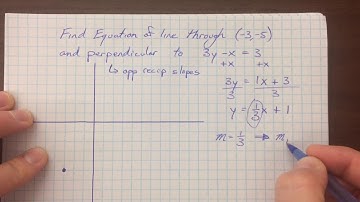 Find Equation of line through (-3,-5)
and perpendicular to 3y - x = 3
+x +x
↳ opp recip slopes
3y = 1x + 3
3 3
y = 1/3 x + 1
m = 1/3 → m